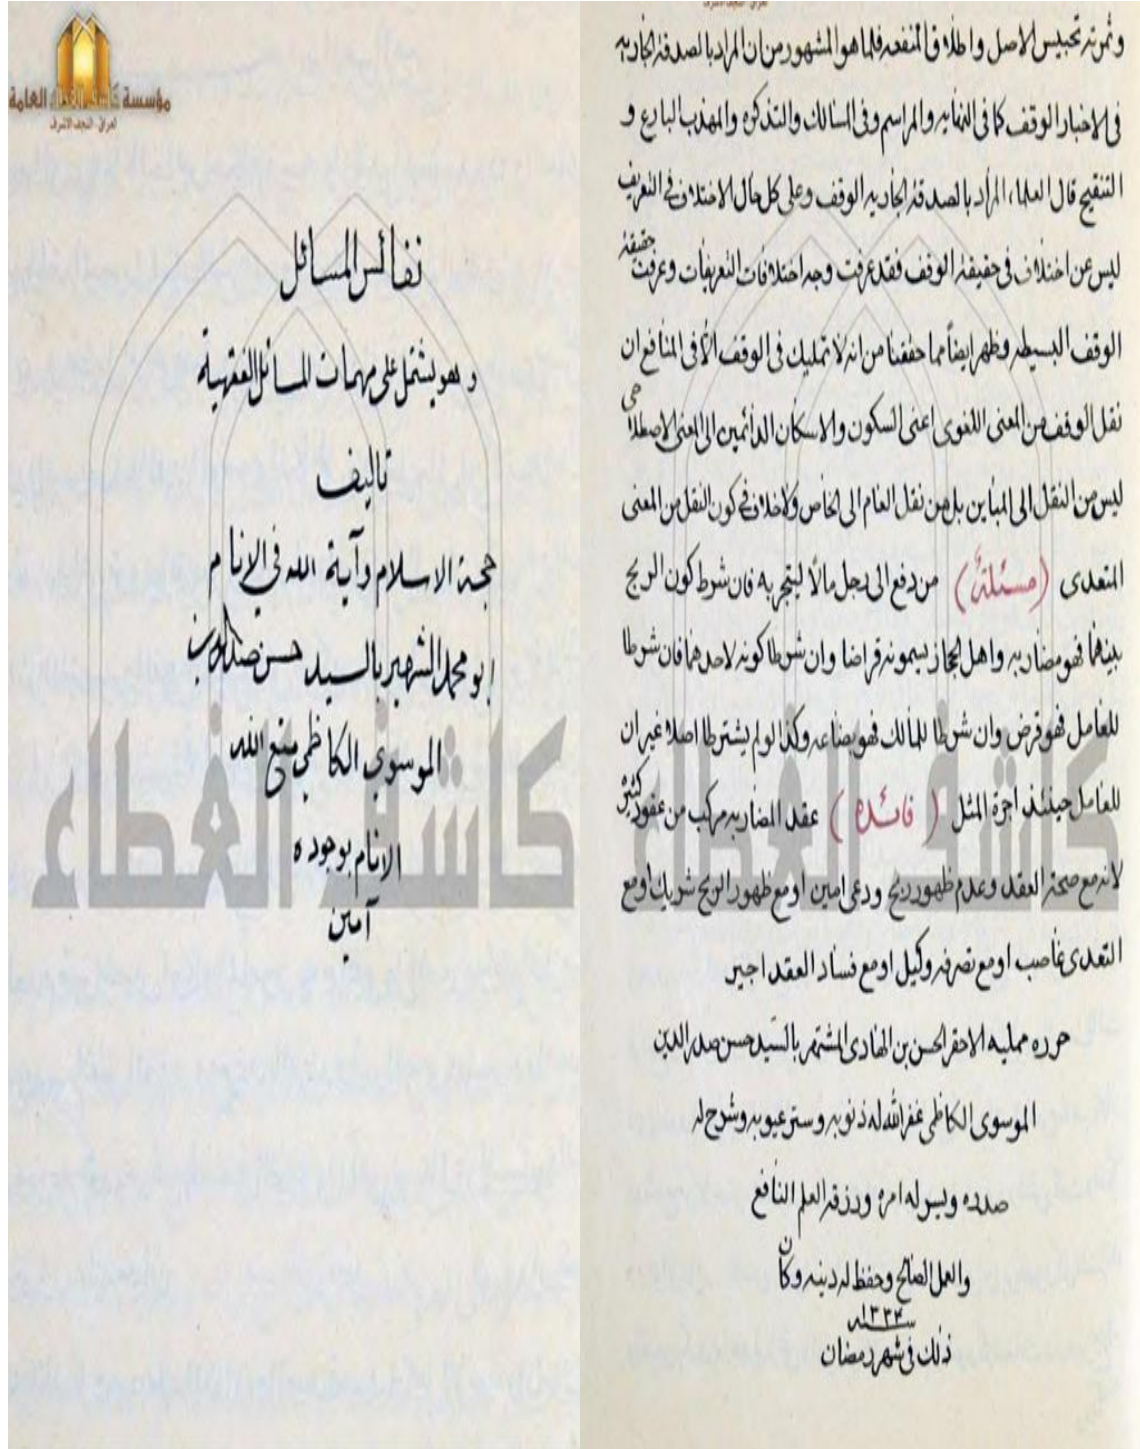 وثمرته تحبيس الاصل واطلاق المنفعه فلما هو المشهور من ان المراد بالصدقة الجاريه
في الاخبار الوقف كما في النهايه والمراسم وفي المسالك والتذكره والمهذب البارع و
التنقيح قال العلماء المراد بالصدقة الجاريه الوقف وعلى كل حال الاختلاف في التعريف
ليس عن اختلاف في حقيقة الوقف فقد عرفت وجه اختلافات التعريفات وعرفت حقيقة
الوقف البسيطه وظهر ايضاً مما حققنا من انه لا تمليك في الوقف الا في المنافع ان
نقل الوقف من المعنى اللغوى اعنى السكون والاسكان الدائمين الى المعنى الاصطلاحى
ليس من النقل الى المباين بل من نقل العام الى الخاص ولا خلاف في كون النقل من المعنى
المتعدى (مسئلة) من دفع الى رجل مالاً ليتجر به فان شرط كون الربح
بينهما فهو مضاربه واهل الحجاز يسمونه قراضا وان شرطا كونه لاحدهما فان شرطا
للعامل فهو قرض وان شرطا للمالك فهو بضاعه وكذا لو لم يشترطا اصلا غير ان
للعامل حينئذ اجرة المثل (فائده) عقد المضاربه مركب من عقود كثيرة
لانه مع صحة العقد وعدم ظهور ربح ودعى امين او مع ظهور الربح شريك او مع
التعدى غاصب او مع تصرفه وكيل او مع فساد العقد اجير
حرره ممليه الاحقر الحسن بن الهادى المشتهر بالسيد حسن صدر الدين
الموسوى الكاظمى غفر الله له ذنوبه وستر عيوبه وشرح له
صدره ويسر له امره ورزقه العلم النافع
والعمل الصالح وحفظ له دينه وكان
ذلك في شهر رمضان
سنه ١٣٣٤
مؤسسة كاشف الغطاء العامة
العراق - النجف الاشرف
نفائس المسائل
وهو يشتمل على مهمات المسائل الفقهية
تاليف
حجة الاسلام وآية الله في الانام
ابو محمد الشهير بالسيد حسن صدر الدين
الموسوي الكاظمي متع الله
الانام بوجوده
آمين
كاشف الغطاء
كاشف الغطاء